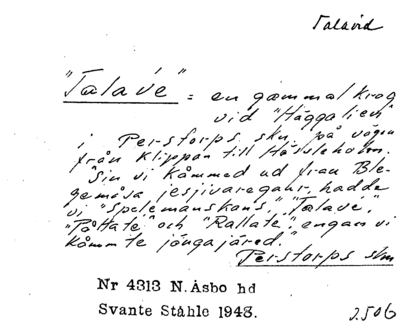 Talavid
"Talavé" = en gammal krog
vid "Häggalien"
i Perstorps skn, på vägen
från Klippan till Hässleholm.
"Sin vi kåmmed ud frau Ble-
gemåsa jesjivaregahr, hadde
vi "Spelemanskans", "Talavé",
"Påttate" och "Rallate", engan vi
kåmm te jöngajäred.
Perstorps skn
Nr 4313 N. Åsbo hd
Svante Ståhle 1943.
2.506